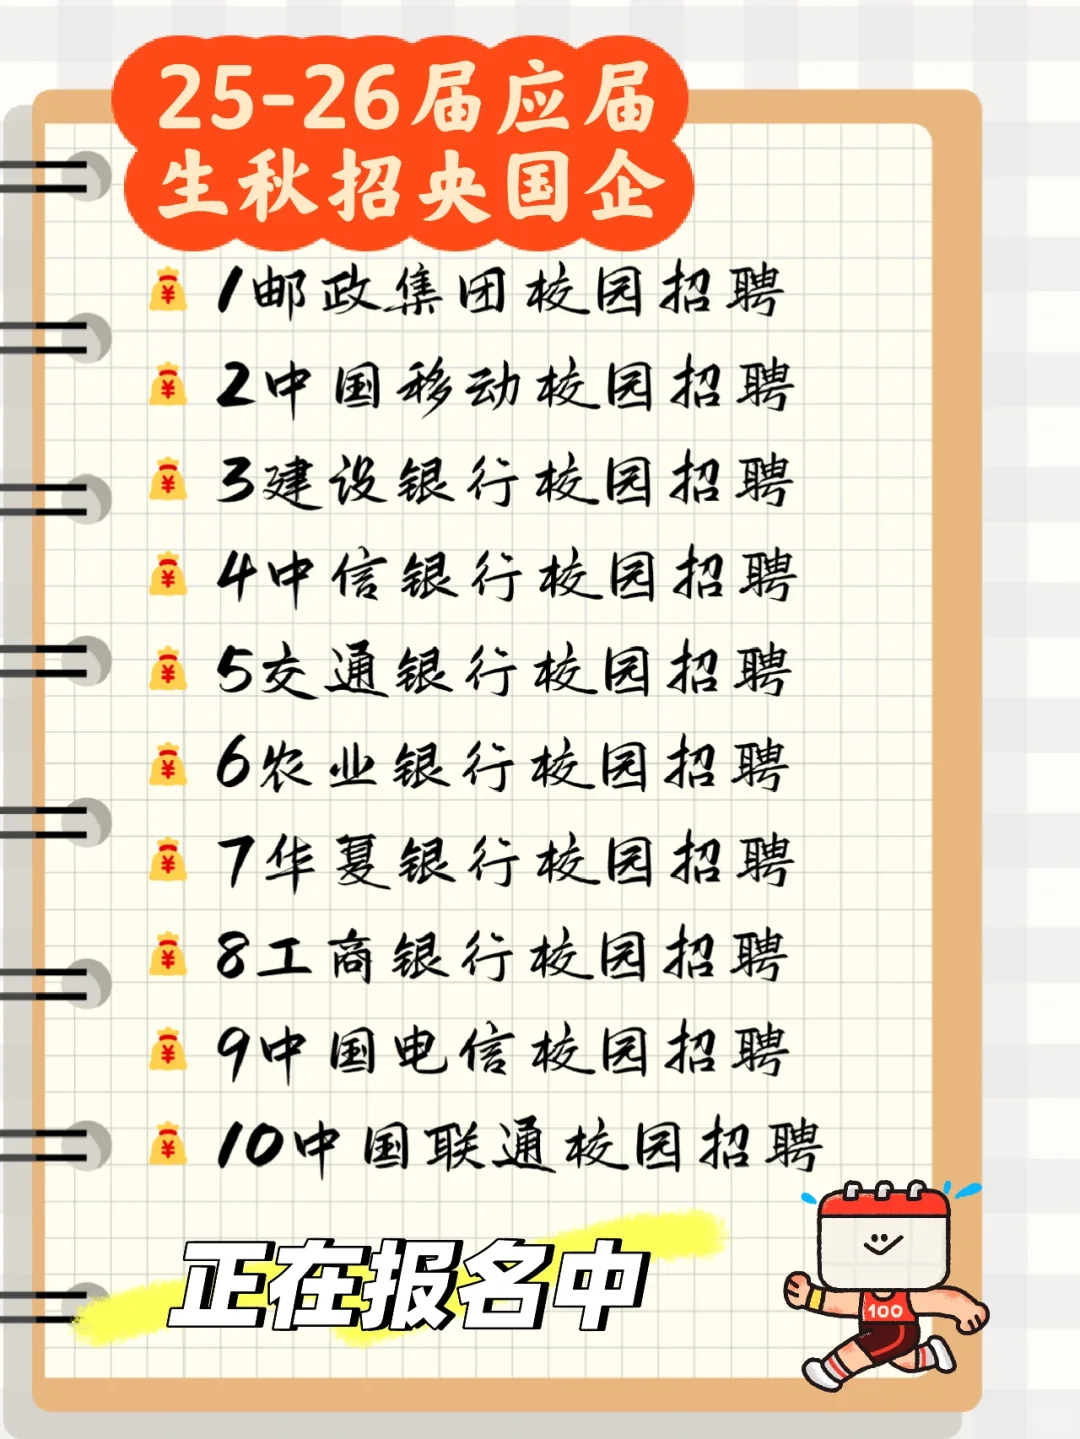 25-26届应届
生秋招央国企
¥ 1邮政集团校园招聘
¥ 2中国移动校园招聘
¥ 3建设银行校园招聘
¥ 4中信银行校园招聘
¥ 5交通银行校园招聘
¥ 6农业银行校园招聘
¥ 7华夏银行校园招聘
¥ 8工商银行校园招聘
¥ 9中国电信校园招聘
¥ 10中国联通校园招聘
正在报名中
100